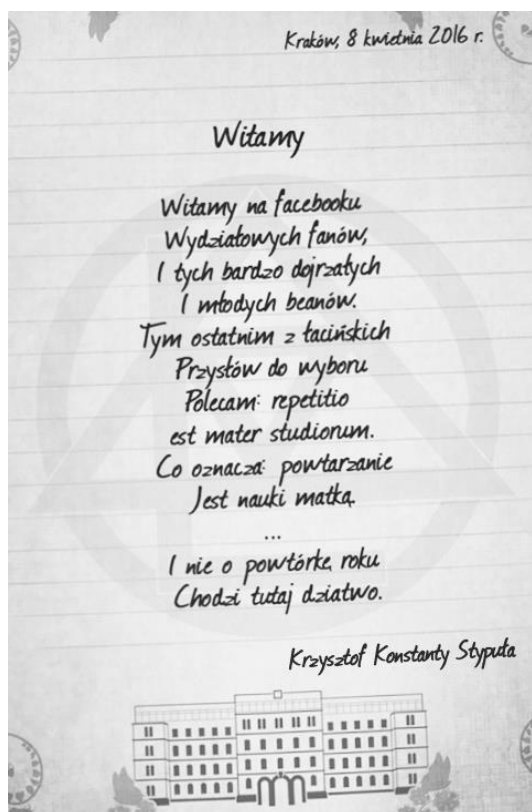 Kraków, 8 kwietnia 2016 r.
Witamy
Witamy na facebooku
Wydziałowych fanów,
I tych bardzo dojrzałych
I młodych beanów.
Tym ostatnim z łacińskich
Przysłów do wyboru
Polecam: repetitio
est mater studiorum.
Co oznacza: powtarzanie
Jest nauki matką.
...
I nie o powtórkę roku
Chodzi tutaj dziatwo.
Krzysztof Konstanty Stypuła